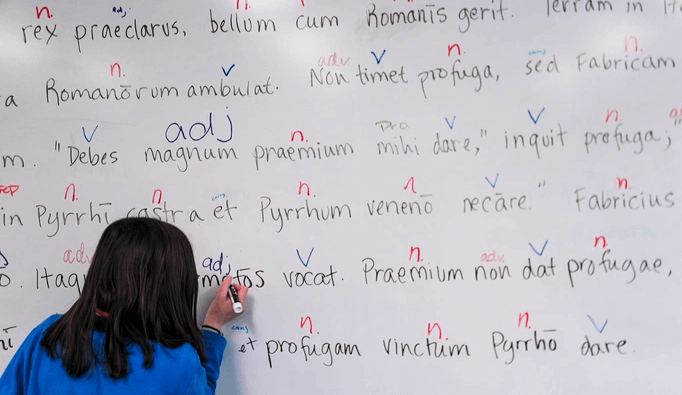 n. adj n. n.
rex praeclarus, bellum cum Romanīs gerit. Terram in
n. V adv V n. conj n.
Romanōrum ambulat. Non timet profuga, sed Fabricam
V adj n. Pro V V n.
m. "Debes magnum praemium mihi dare," inquit profuga; "
n. n. conj n. n V n.
in Pyrrhī castra et Pyrrhum venenō necāre." Fabricius
adj V n. adv. V n.
vocat. Praemium non dat profugae,
conj n. n. n. V
et profugam vinctum Pyrrhō dare.